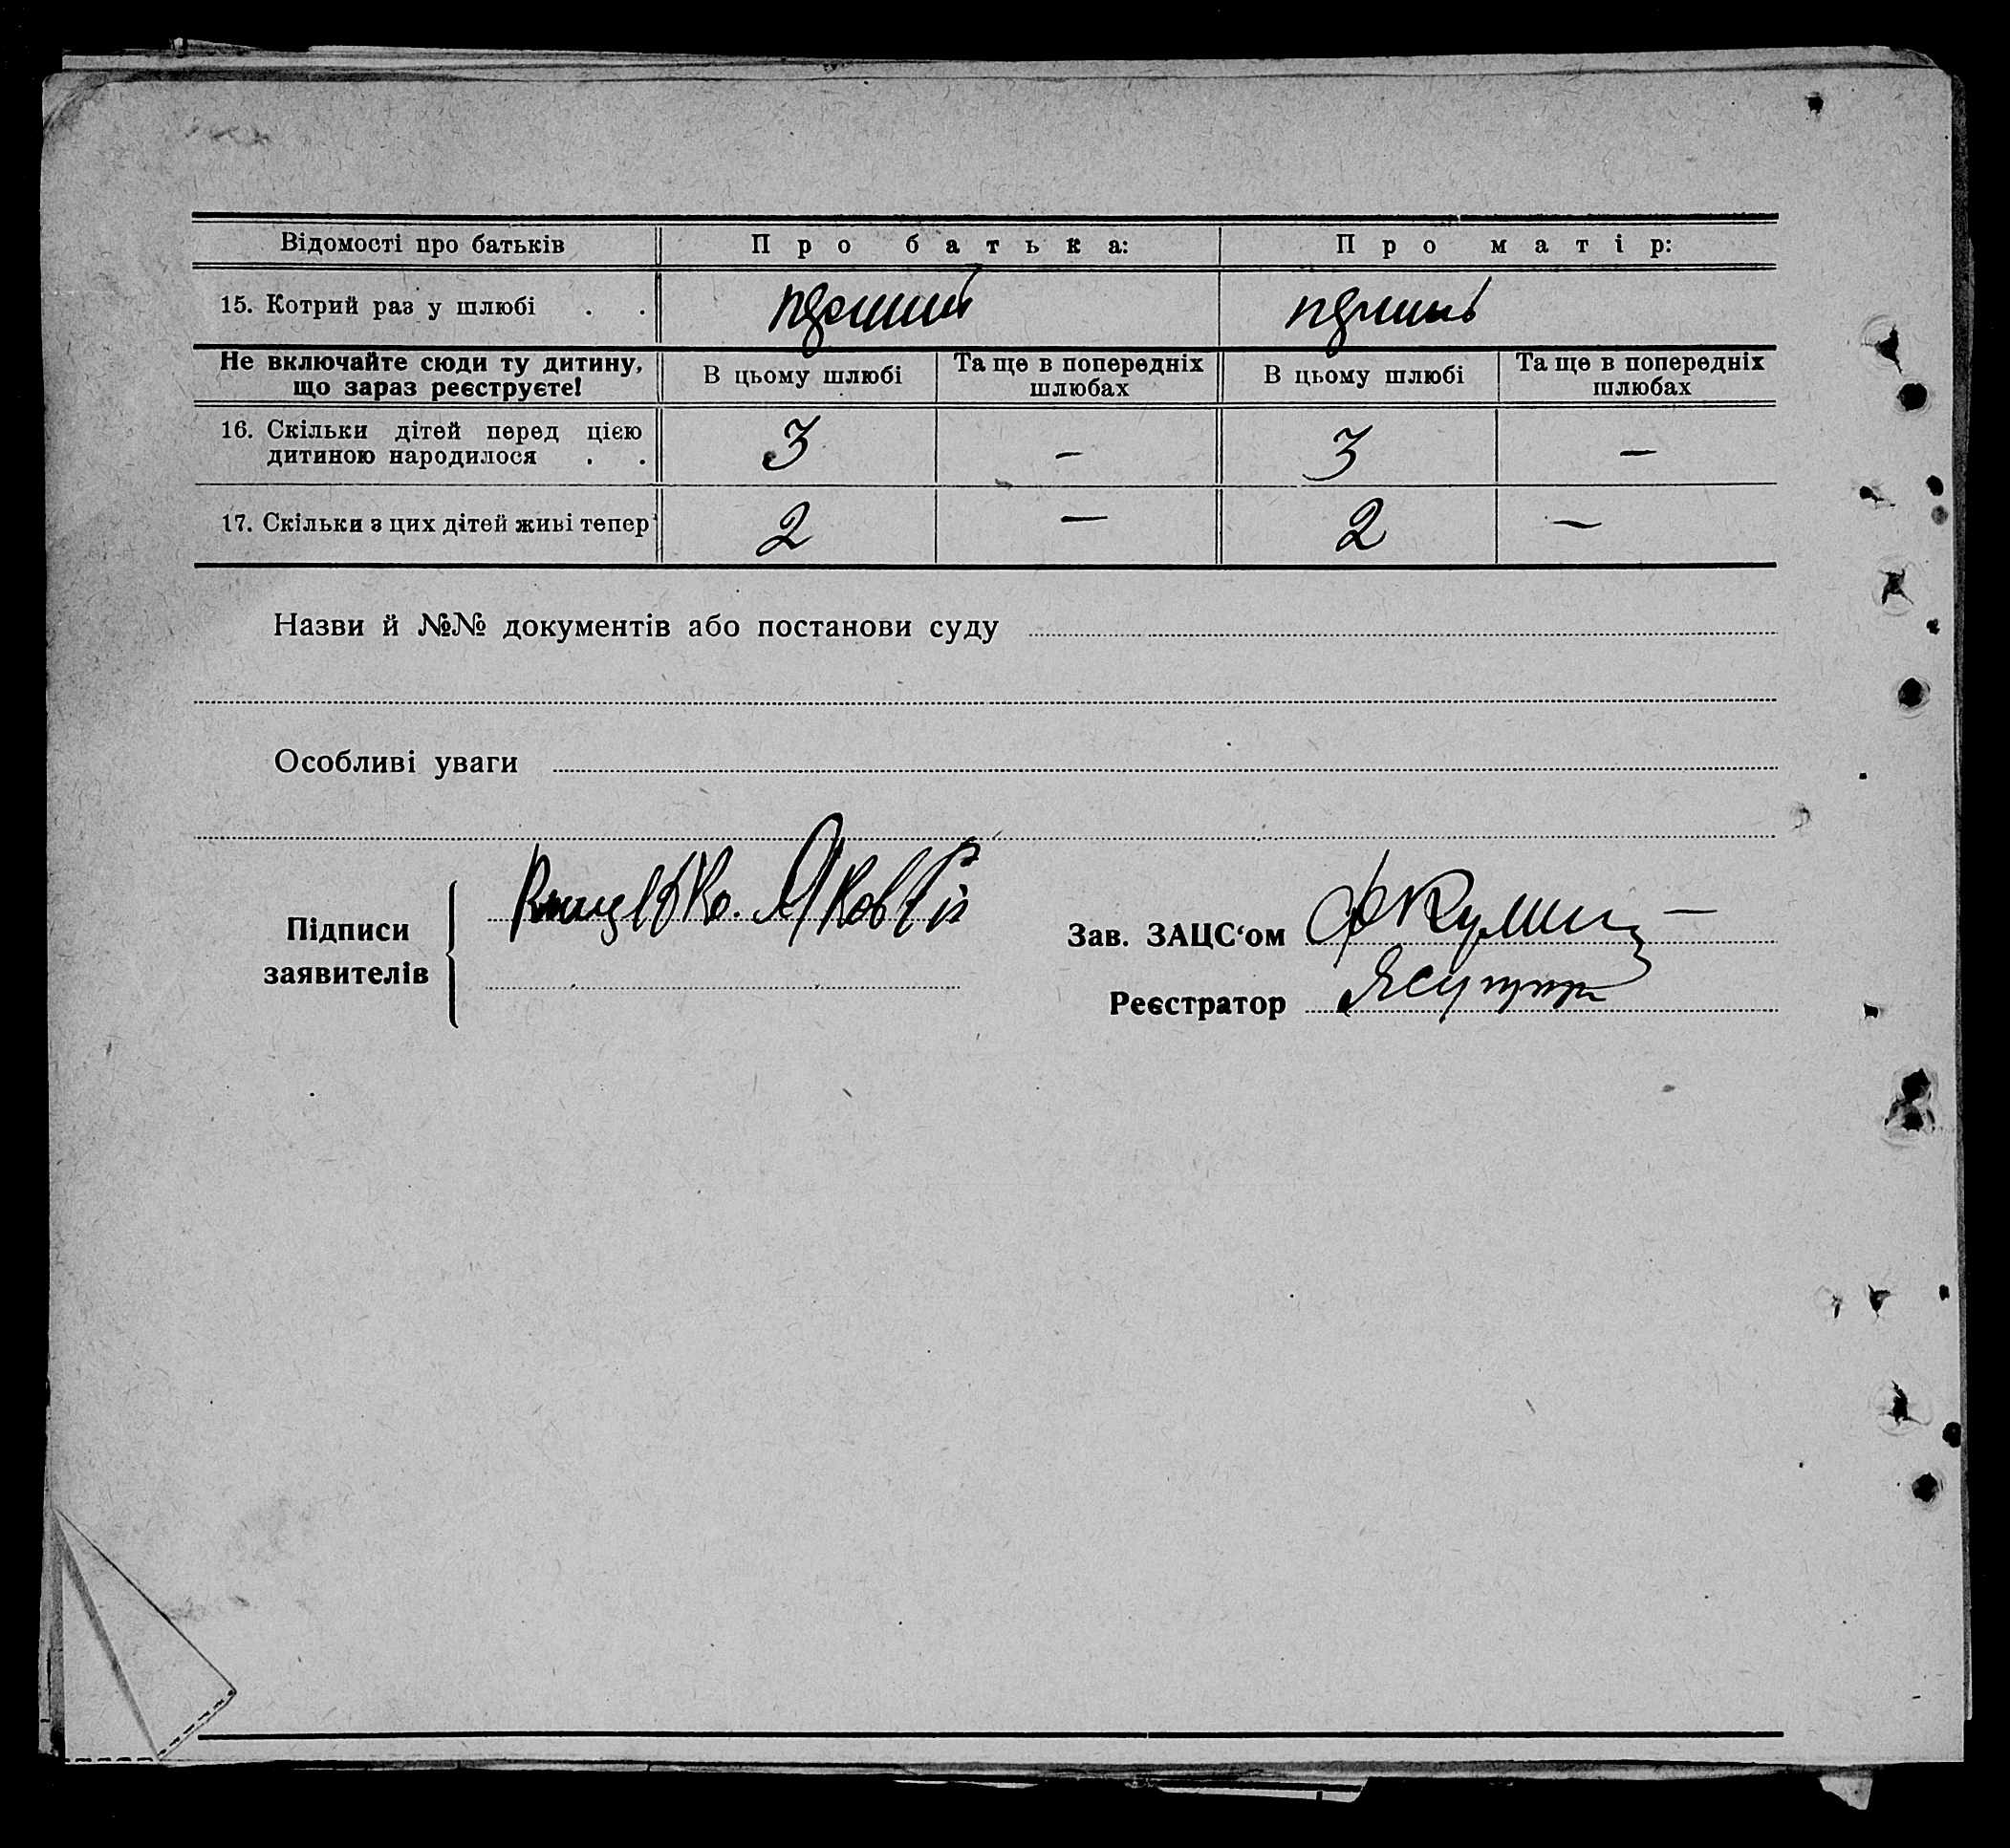 Відомості про батьків
Про батька:
Про матір:
15. Котрий раз у шлюбі . .
перший
Не включайте сюди ту дитину,
що зараз реєструєте!
В цьому шлюбі
Та ще в попередніх
шлюбах
В цьому шлюбі
Та ще в попередніх
шлюбах
16. Скільки дітей перед цією
дитиною народилося . .
3
—
3
—
17. Скільки з цих дітей живі тепер
2
—
2
—
Назви й №№ документів або постанови суду
Особливі уваги
Підписи
заявителів
Зав. ЗАЦС‘ом
Реєстратор